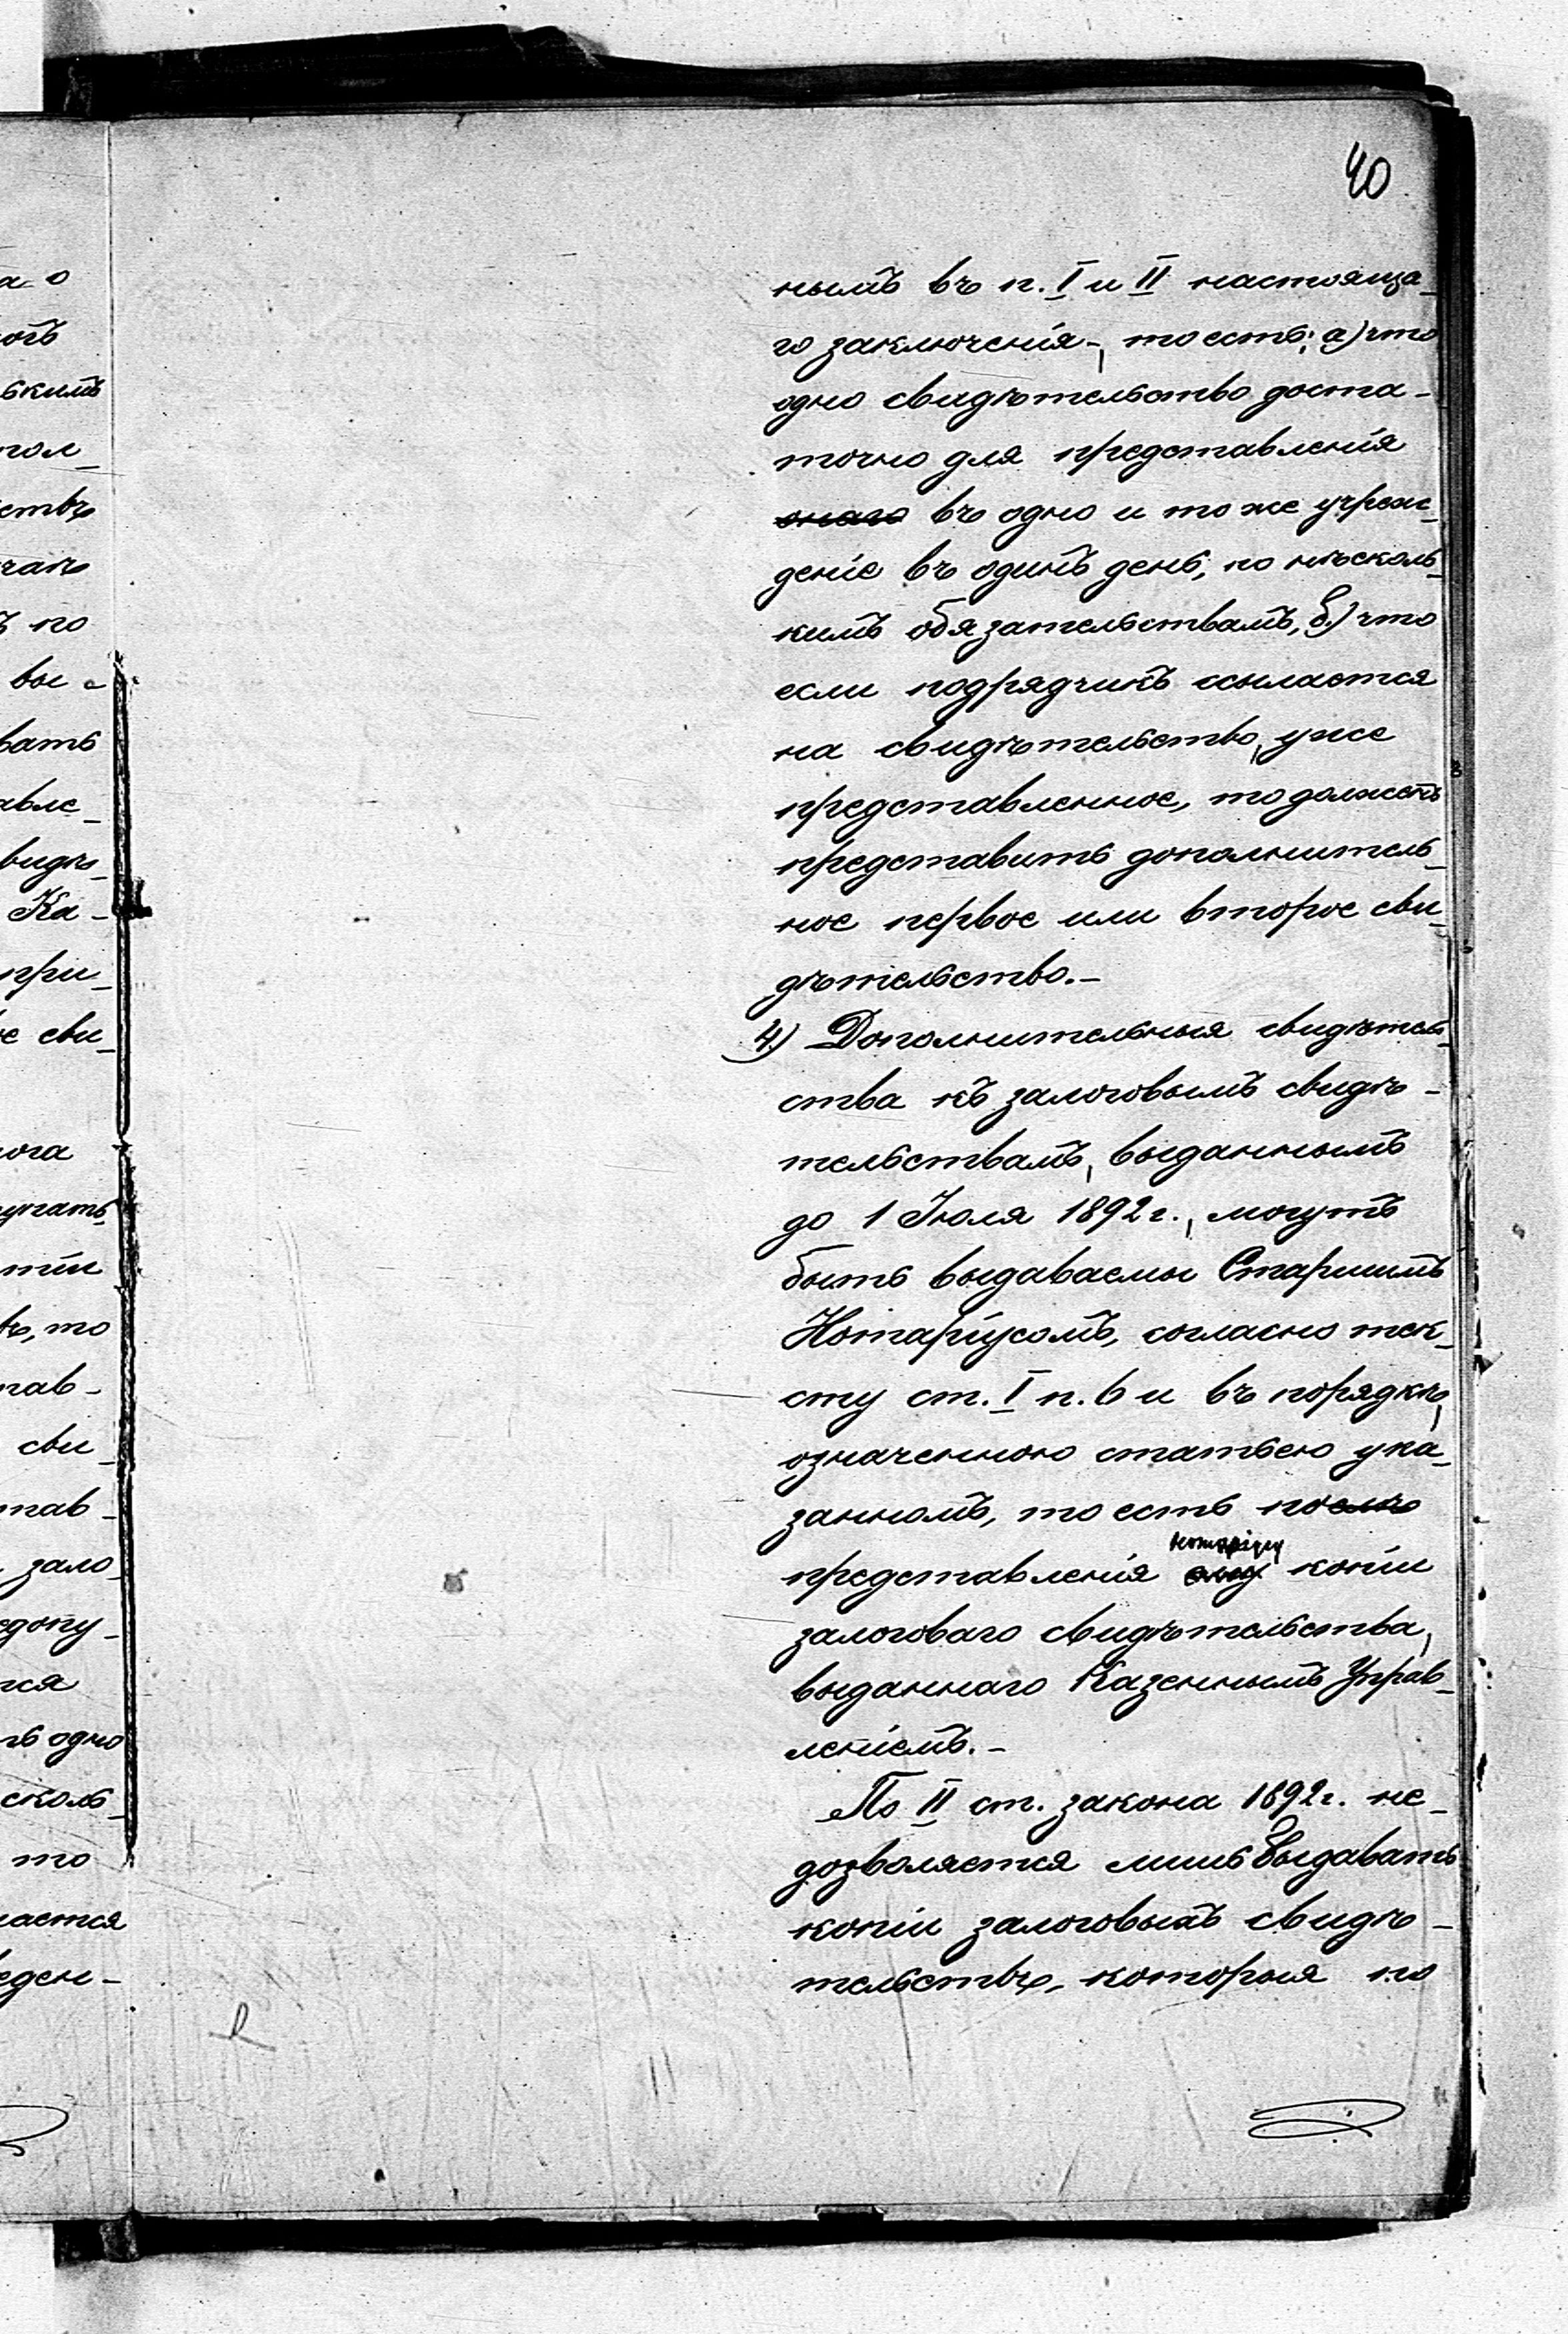 40
нымъ въ п. I и II настояща-
го заключенія-, то есть: а) что
одно свидѣтельство доста-
точно для представленія
онаго въ одно и тоже учреж-
деніе въ одинъ день, по нѣсколь-
кимъ обязательствамъ, б.) что
если подрядчикъ ссылается
на свидѣтельство, уже
представленное, то долженъ
представить дополнитель-
ное первое или второе сви-
дѣтельство.-
4) Дополнительныя свидѣтель-
ства къ залоговымъ свидѣ-
тельствамъ, выданнымъ
до 1 Іюля 1892 г., могутъ
быть выдаваемы Старшимъ
Нотаріусомъ, согласно тек-
сту ст. I п. 6 и въ порядкѣ,
означенною статьею ука-
занномъ, то есть послѣ
нотаріусу
представленія ему копіи
залоговаго свидѣтельства,
выданнаго Казеннымъ Управ-
леніемъ.-
По II ст. закона 1892 г. не-
дозволяется лишь выдавать
копіи залоговыхъ свидѣ-
тельствъ, которыя по
а о
скимъ
пол-
ствъ
ъ по
вы-
вать
авле-
видѣ-
Ка-
при-
е сви-
лога
тіи
въ, то
тав-
сви-
тав-
зало-
едопу-
тся
ть одно
сколь-
то
лается
еден-